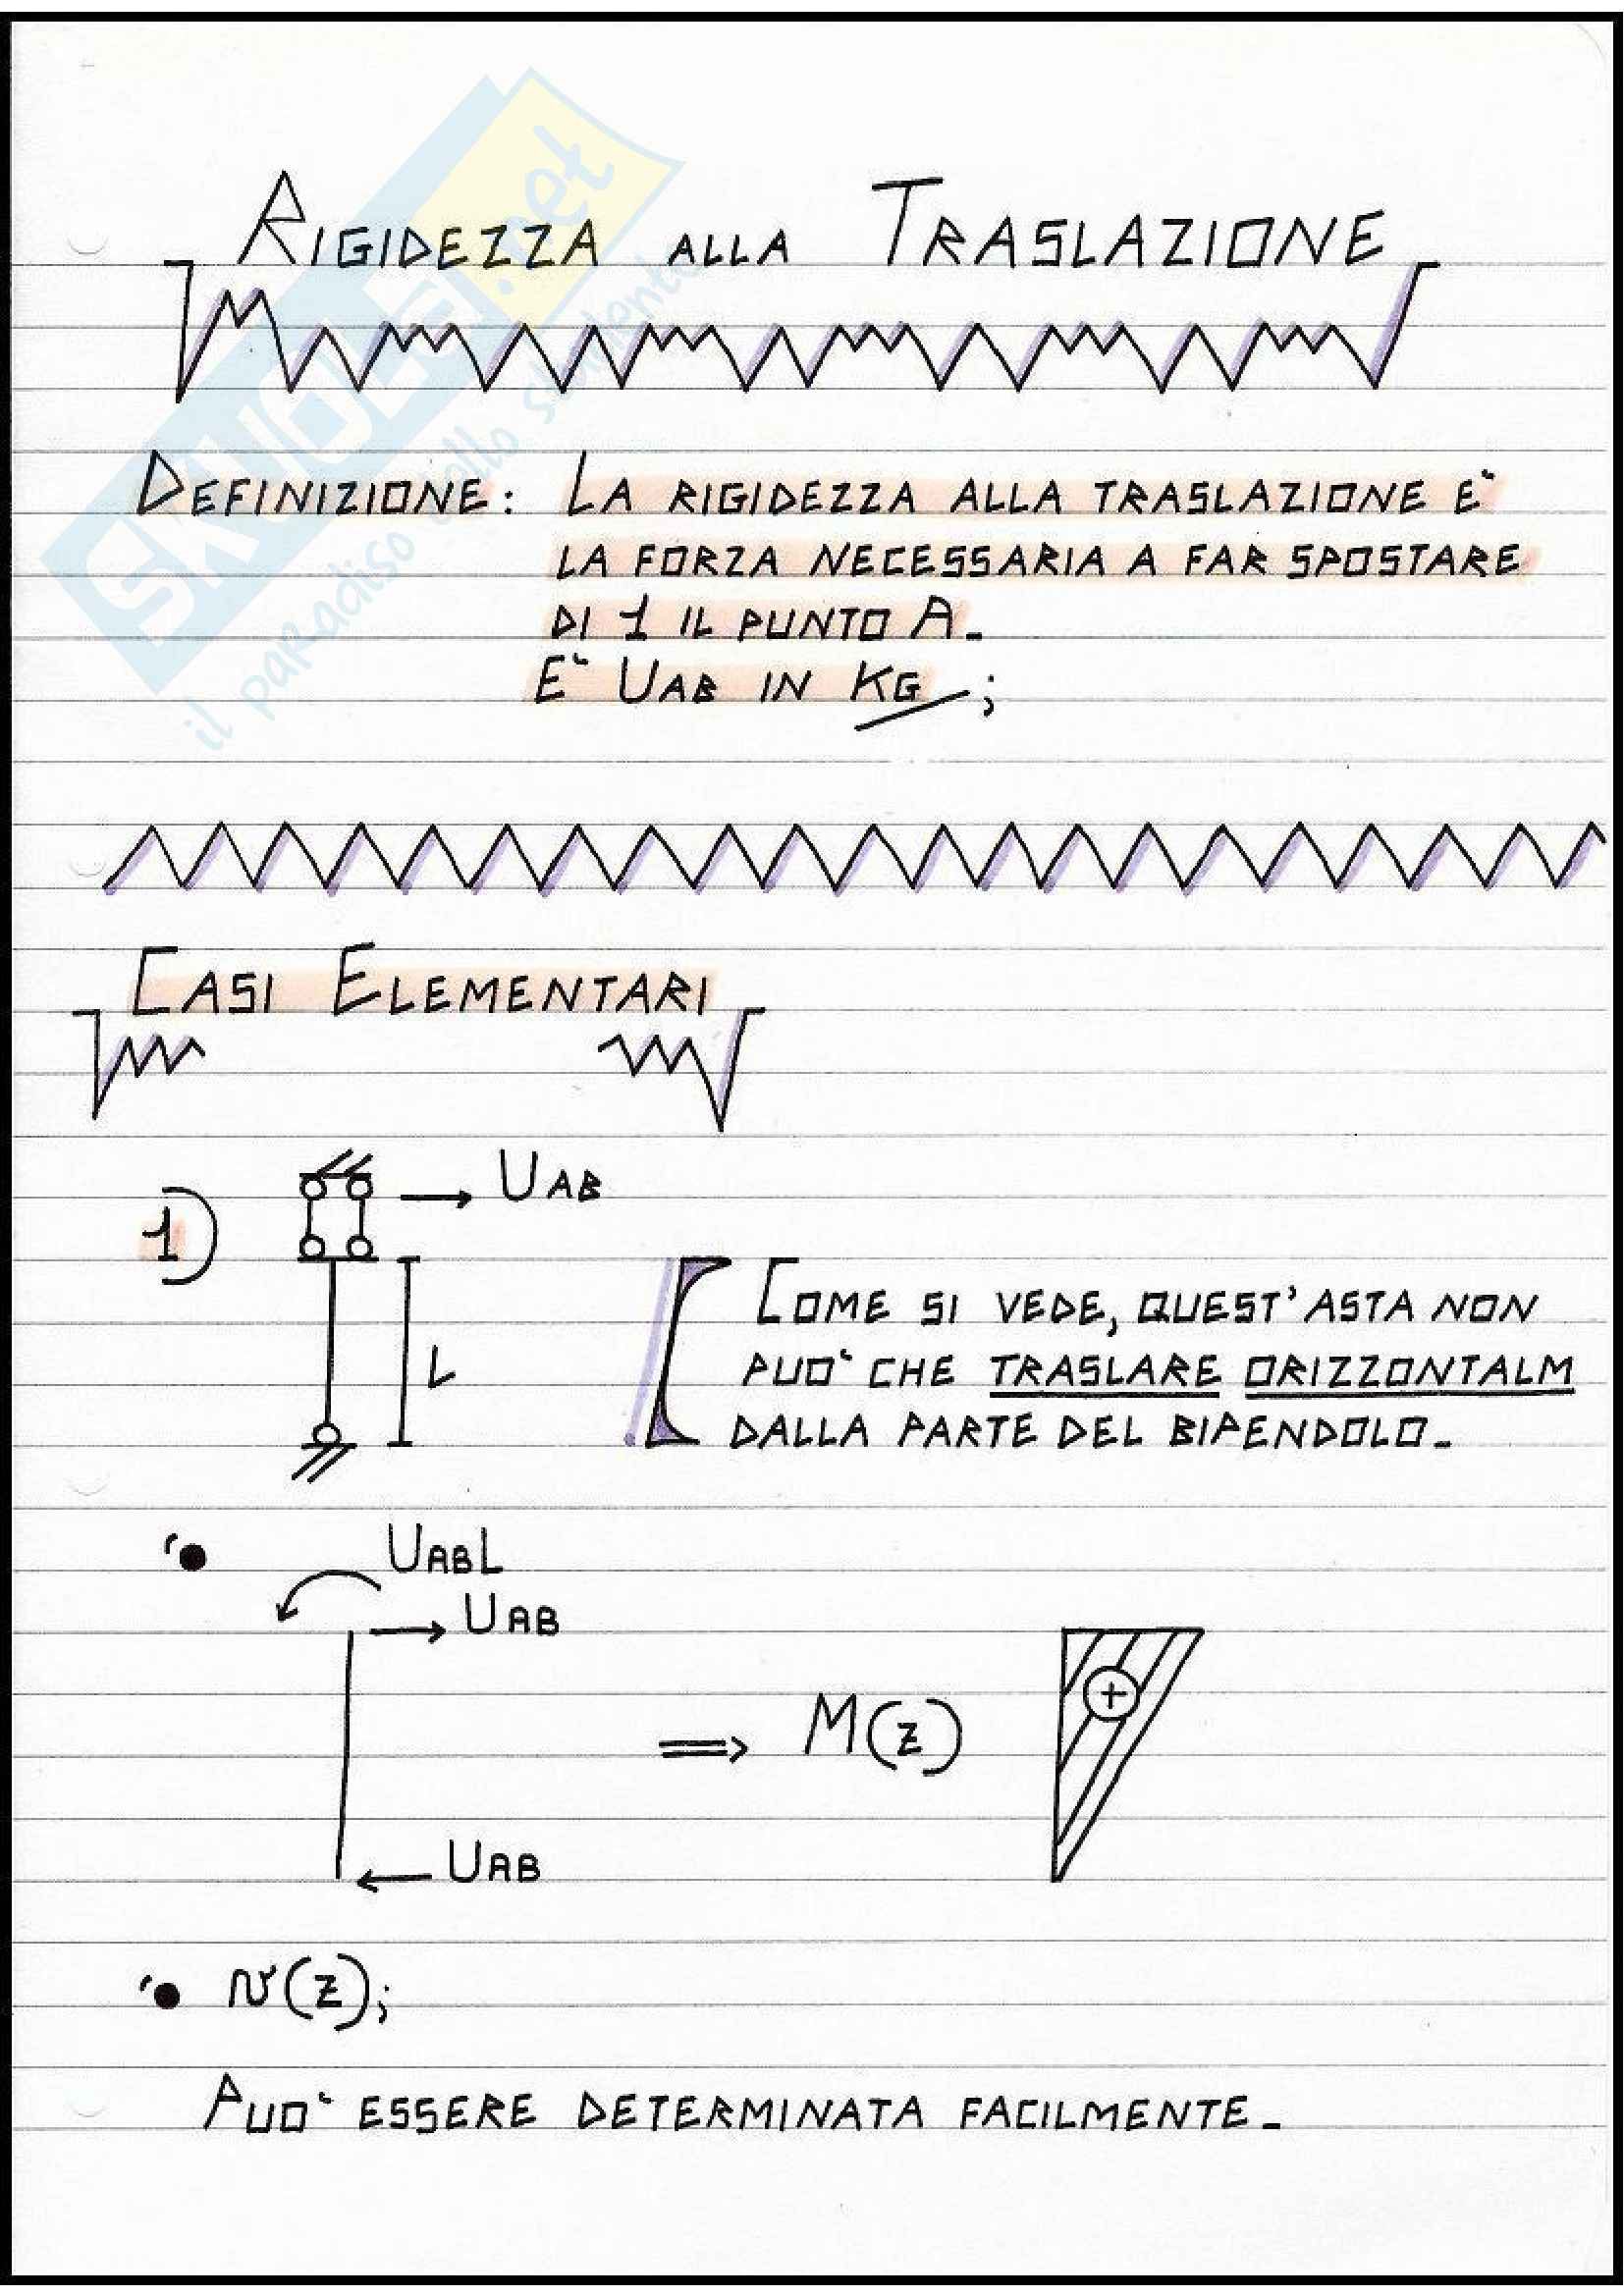 RIGIDEZZA ALLA TRASLAZIONE
SKUOLA.net
il paradiso dello studente
DEFINIZIONE: LA RIGIDEZZA ALLA TRASLAZIONE E'
LA FORZA NECESSARIA A FAR SPOSTARE
DI 1 IL PUNTO A.
E' UAB IN KG ;
CASI ELEMENTARI
1)
UAB
L
COME SI VEDE, QUEST'ASTA NON
PUO' CHE TRASLARE ORIZZONTALM
DALLA PARTE DEL BIPENDOLO.
UABL
UAB
⇒ M(z) +
UAB
v(z);
PUO' ESSERE DETERMINATA FACILMENTE.